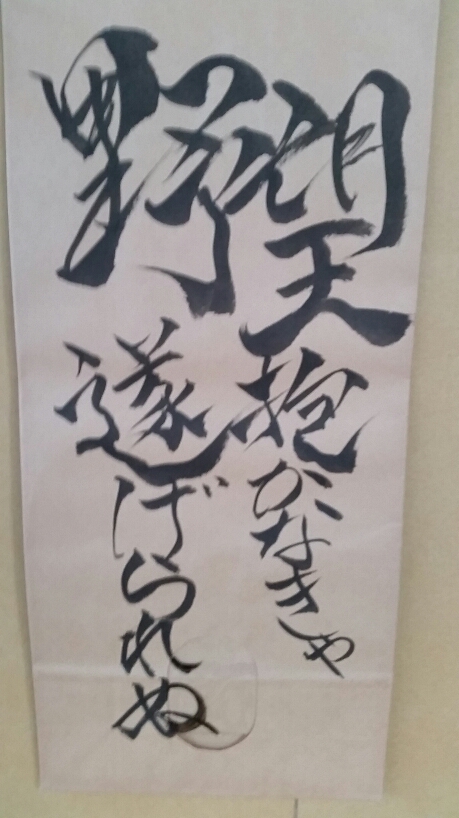 野望
抱かなきゃ
遂げられぬ